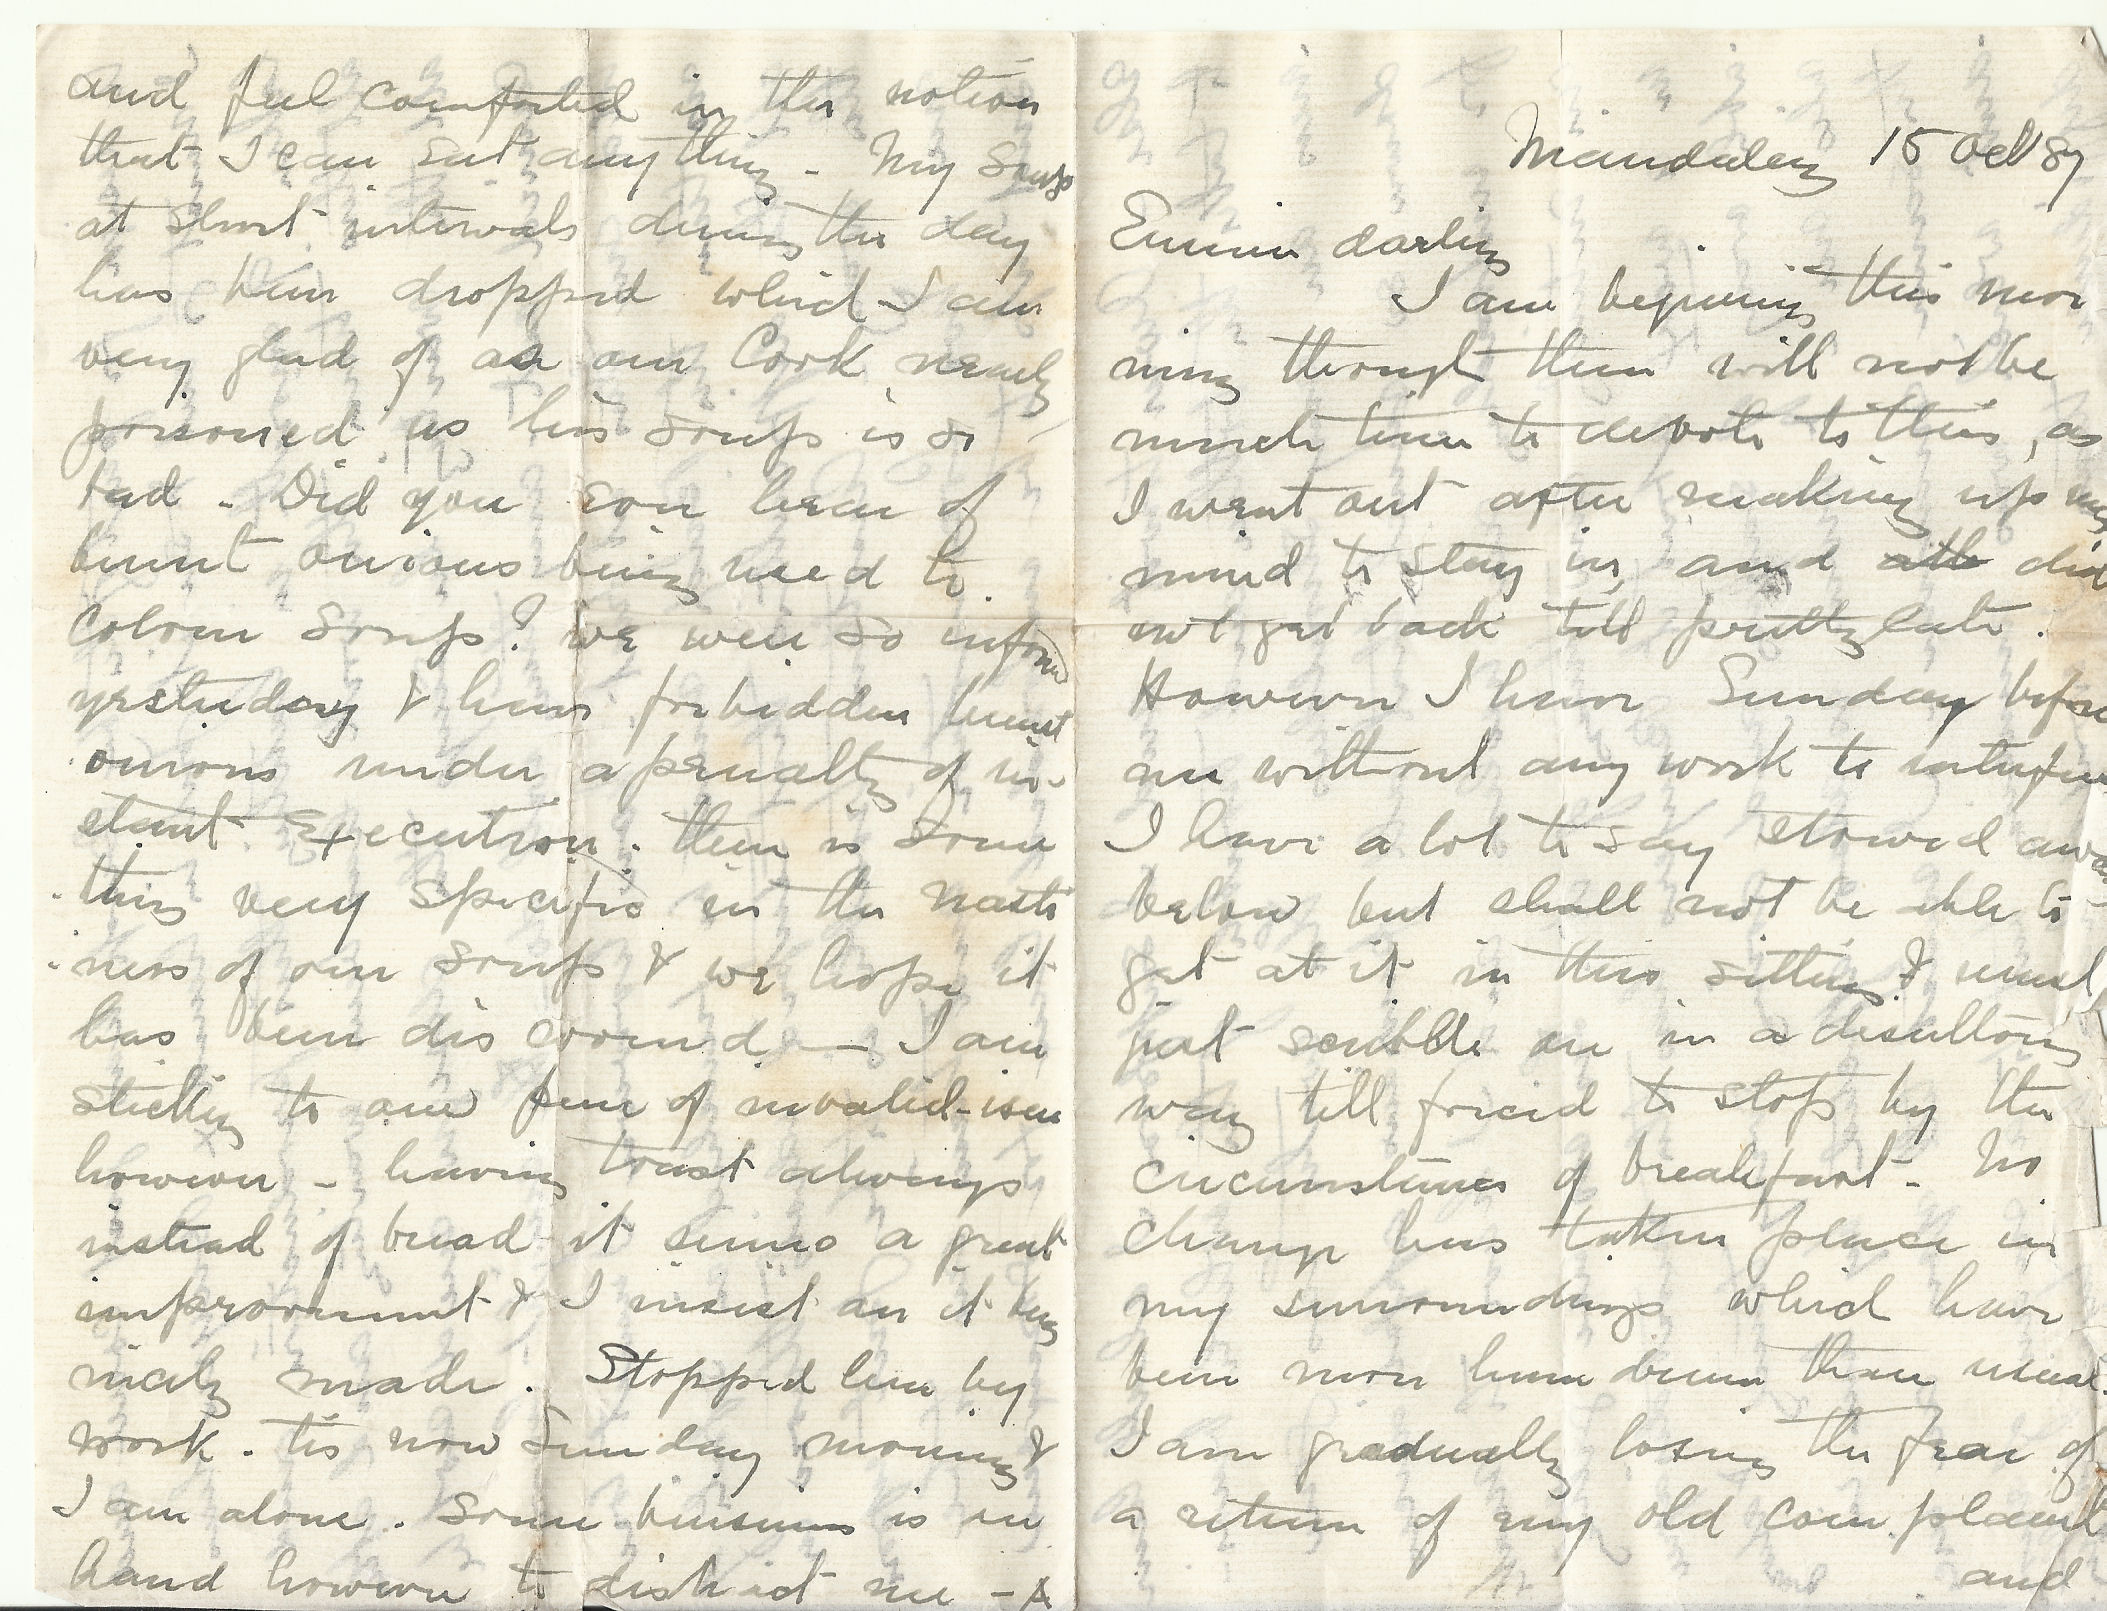 Mandalay 15 Oct 87
Emmie darling
I am beginning this mor
ning though there will not be
much time to devote to this, as
I went out after making up my
mind to stay in, and did
not get back till pretty late.
However I have Sunday before
me without any work to interfere
I have a lot to say stowed away
below but shall not be able to
get at it in this sitting & must
just scribble on in a desultory
way till forced to stop by the
circumstances of breakfast - No
change has taken place in
my surroundings which have
been more humdrum than usual.
I am gradually losing the fear of
a return of my old complaint
and
and feel comforted in the notion
that I can eat anything - My soup
at short intervals during the day
has been dropped which I am
very glad of as our Cook nearly
poisoned us his soup is so
bad - Did you ever hear of
burnt onions being used to
colour soup? we were so informed
yesterday & have forbidden burnt
onions under a penalty of in-
stant execution. there is some
thing very specific in the nasti
ness of our soup & we hope it
has been discovered — I am
sticking to one form of invalid-ism
however - having toast always
instead of bread it seems a great
improvement & I insist on it being
nicely made. Stopped here by
work. tis now Sunday morning &
I am alone. Some business is in
hand however to distract me - A